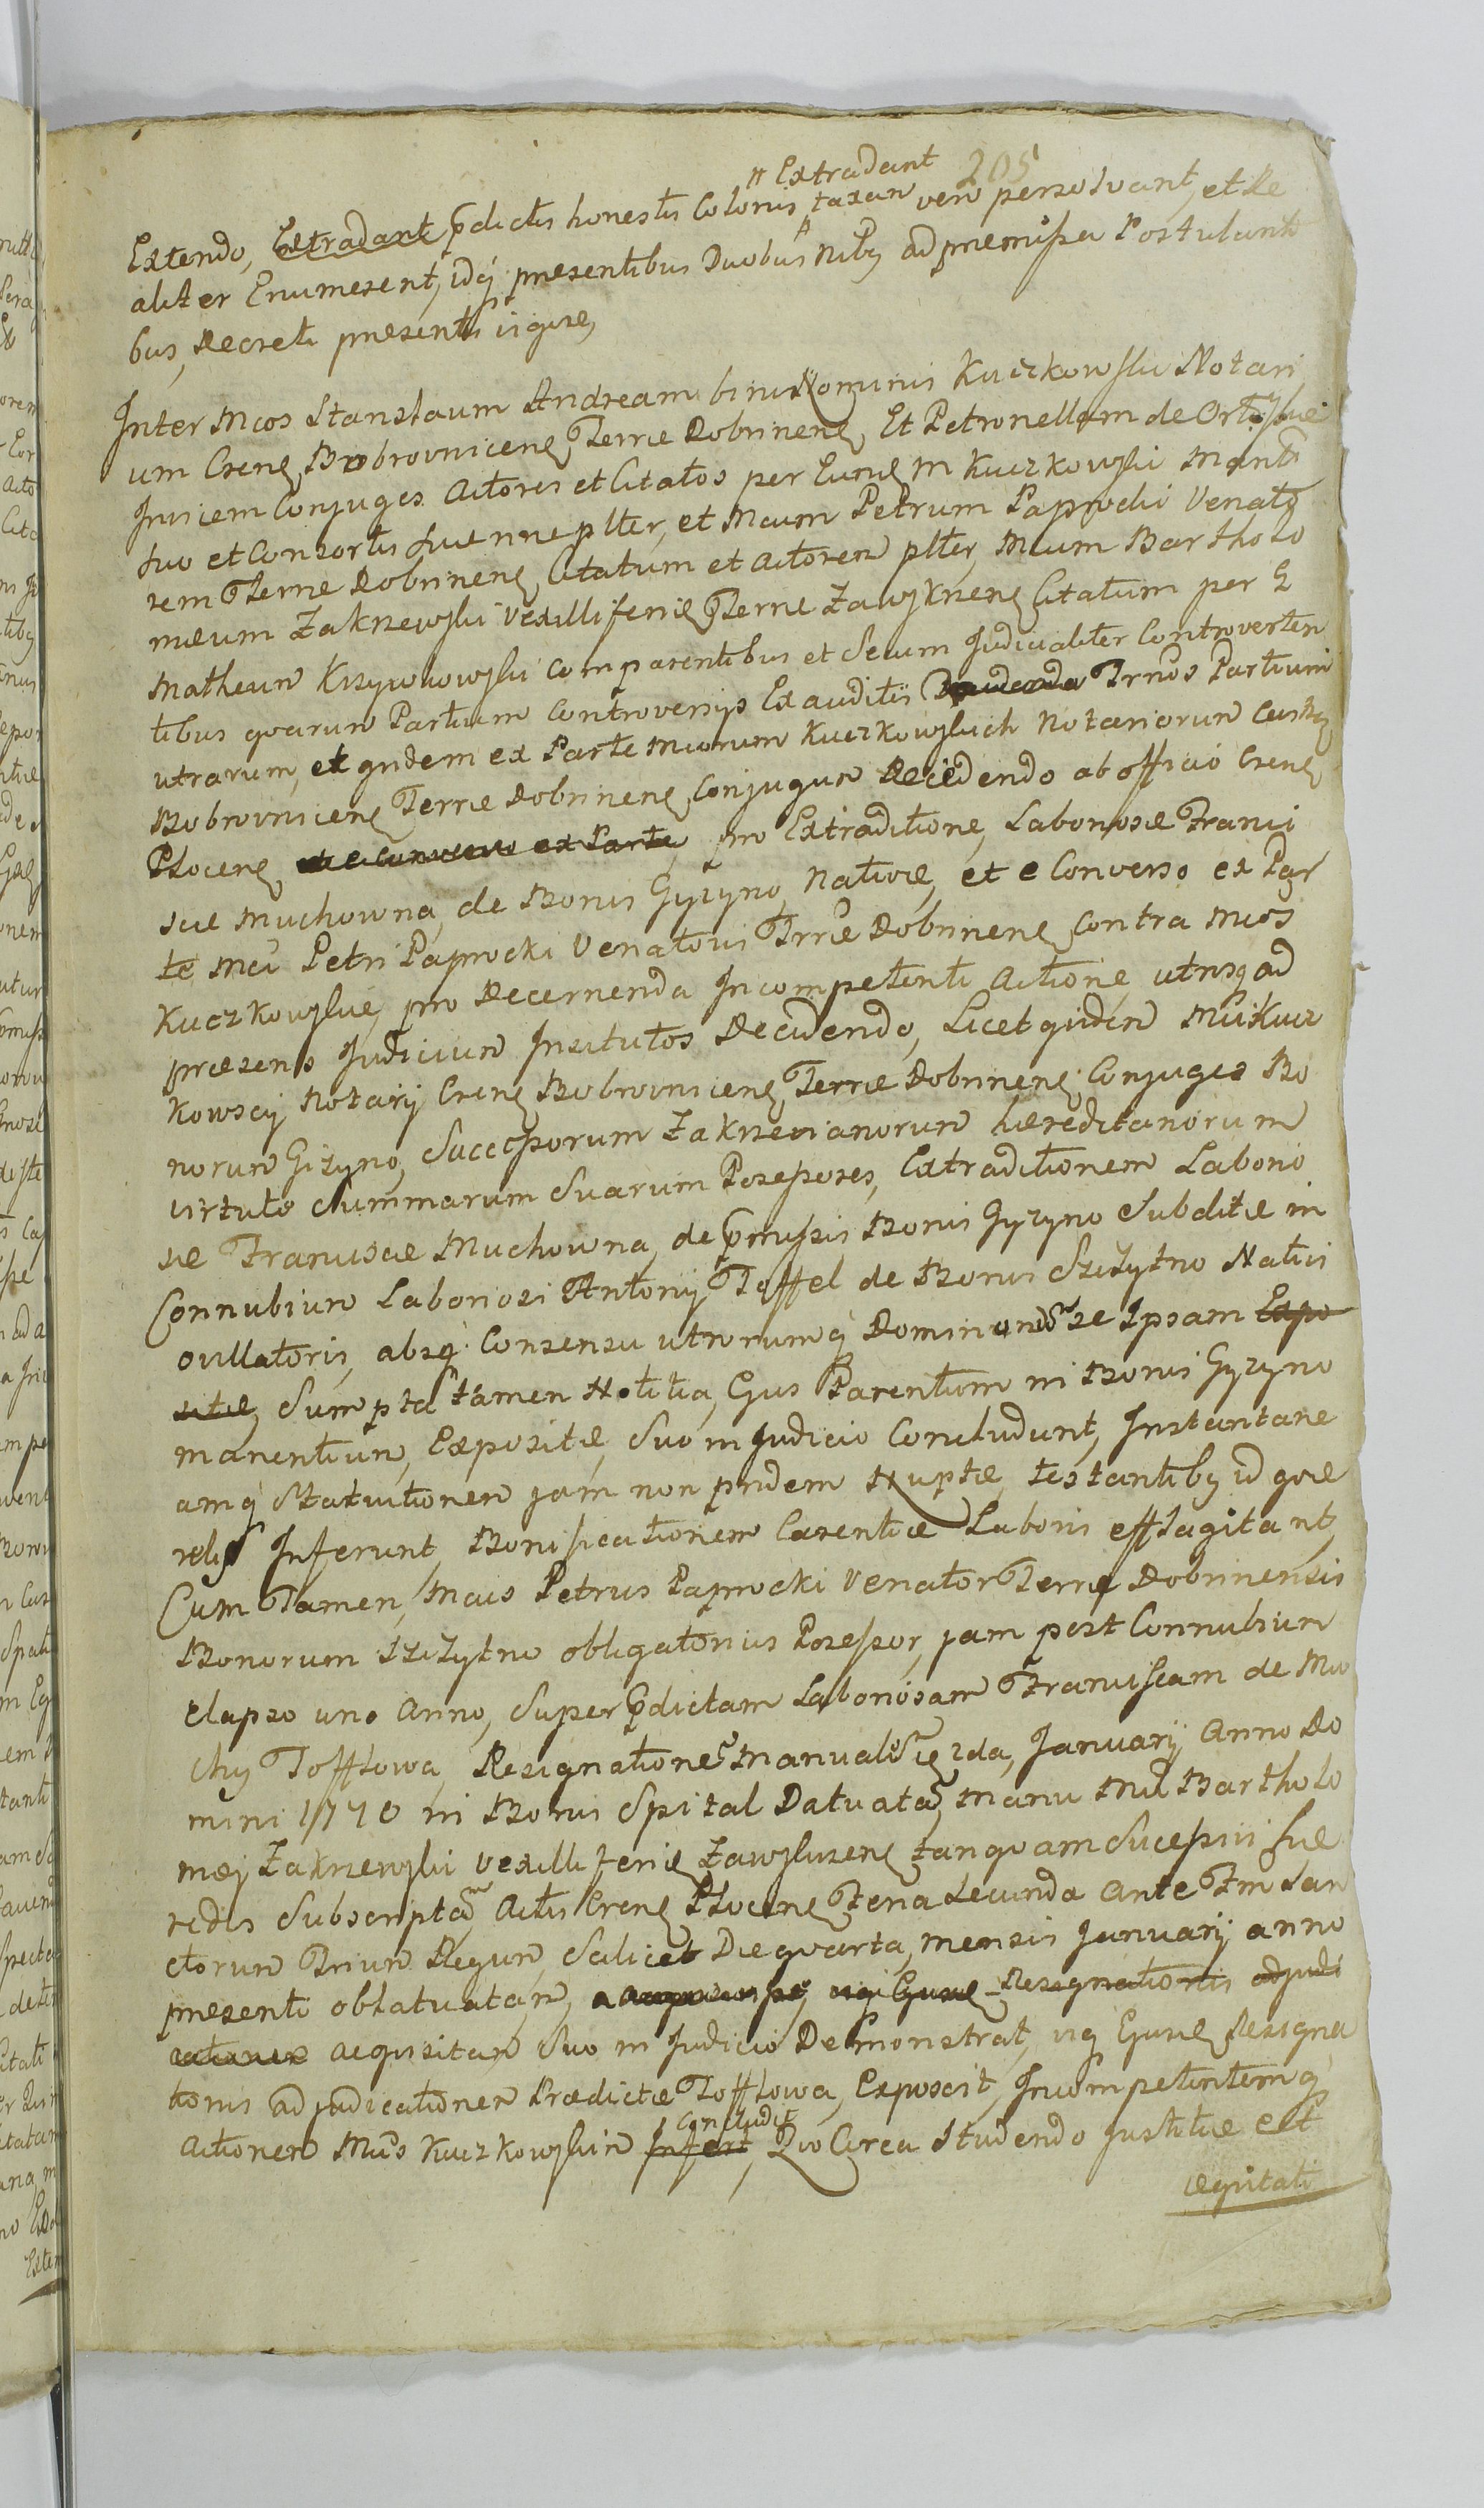 205
// Extradant
Extendo, Extradant p̄dictis honestis Colonis, taxan̄ vero persolvant, et Re
aliter Enumerent, idq̨ presentibus Duobus Nib9 ad premissa Postulanti
bus, Decreti presentis vigore,
Inter Mcos Stanslaum Andream binis Nominis Kuczkowski Notari
um Cren̄ Bobrovnicen̄ Terre Dobrinen̄, Et Petronellam de
Invicem Conjuges Actores et Citatos per Eund̄ M Kuczkowski Mariti
suo et Consortis sue nne plter, et Mcum Petrum Paprocki Venato
rem Terre Dobrinen̄ Citatum et Actorem plter, Mcum Bartholo
mæum Zakrzewski Vexilliferu̅ Terre Zawskrzen̄ Citatum per G
Matheum Krzywkowski Comparentibus et Secum Judicialiter Controverten
tibus qvarum Partium Controversijs Exauditis Trnos Partium
utrarum, et qvidem ex Parte Mcorum Kuczkowskich Notariorum
Bobrovnicen̄ Terre Dobrinen̄ Conjugum Decidendo ab officio Cren̄
Plocen̄ et e Converso ex Parte, pro Extraditione, Laboriosæ Franci
scæ Muchowna, de Bonis Gyzyno, Nativæ, et e Converso ex Par
te Mci Petri Paprocki Venatoris Trræ Dobrinen̄ Contra Mcos
Kuczkowskie, pro Decernenda Incompetenti Actione, utrisq̨ ad
præsens Judicium Institutos Decidendo, Licet qvidem Mci Kucz
kowscy Notarij Cren̄ Bobrovnicen̄ Terræ Dobrinen̄ Conjuges Bo
norum Gizyno, Successorum Zakrzevianorum hæreditariorum
virtute Summarum Suarum Possessores, Extraditionem Laborio
sæ Franciscæ Muchowna, de p̄missis Bonis Gyzyno Subditæ in
Connubium Laboriosi Antonij Toffel de Bonis Szczytno Nativi
ovillatoris, absq̨ Consensu utrorumq̨ Dominorum se Ipsam Expo
sitæ, Sumpta tamen Notitia, Ejus Parentum in Bonis Gyzyno
manentium, Expositæ, Suo in Judicio Concludunt, Instantane
amq̨ Statuitionem jam non pridem Nuptæ, testantib9 id qve
relis Inferunt, Bonificationem Carentiæ Laboris efflagitant,
Cum Tamen, Mcus Petrus Paprocki Venator Terræ Dobrinensis
Bonorum Szczytno obligatorius Possessor, jam post Connubium
elapso uno Anno, Super p̄dictam Laboriosam Franciscam de Mu
chy Tofflowa, Resignatione Manuali die 2da, Januarij Anno Do
mini 1770 in Bonis Spital Datvata Manu Mci Bartholo
mæj Zakrzewski Vexilliferis Zawskrzen̄ tanqvam Sucessivi suæ
redis Subscripta Actis Cren̄ Plocen̄ Feria Secunda Ante Fm̄ San
ctorum Trium Regum, Scilicet Die qvarta, mensis Januarij anno
presenti oblatvatam, Resignationis adjudi
cationem acqvisitam Suo in Judicio Demonstrat, viq̨ Ejusd̄ Resigna
tionis adjudicationem Prædictæ Tofflowa, Exposcit, Incompetentemq̨
Concludit
Actionem Mcos Kuczkowskim Infert, Qvo Circa Studendo Justitiæ et
æqvitati